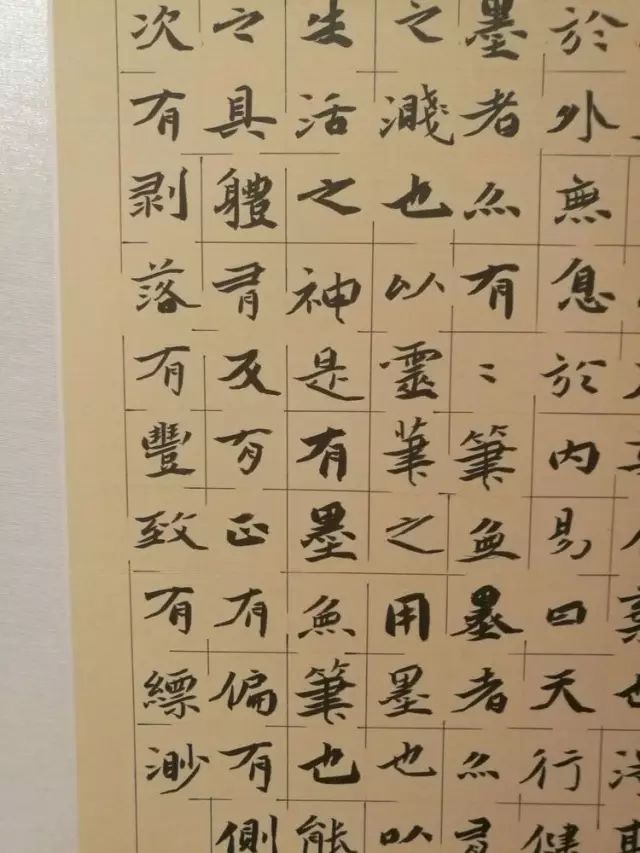 於外無息於內易曰天行健
墨者亦有〻筆無墨者亦有
之濺也以靈筆之用墨也以
生活之神是有墨無筆也能
之具體有反有正有偏有側
次有剥落有豐致有縹渺